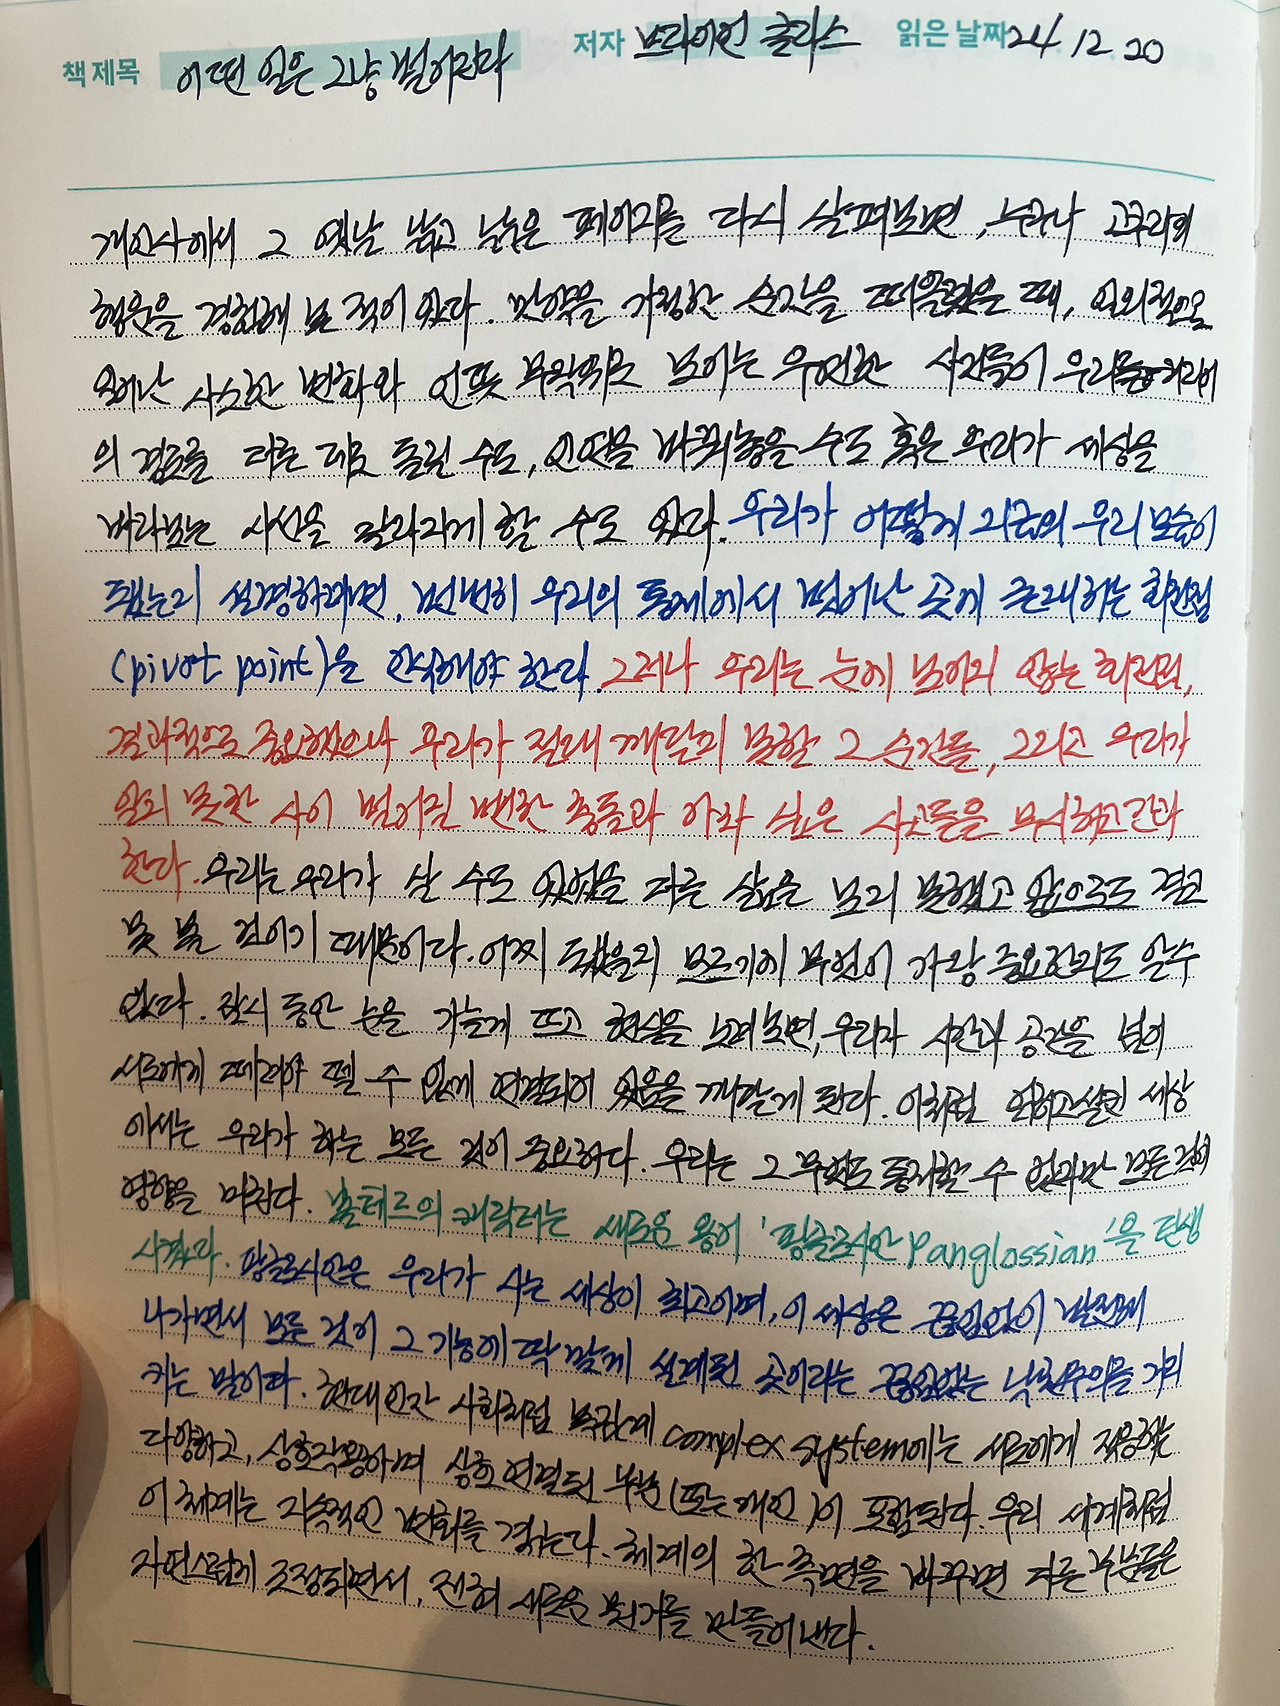 책 제목 어떤 일은 그냥 벌어진다 저자 브라이언 클라스 읽은 날짜 24. 12. 20
개인사에서 그 옛날 낡고 낡은 페이지를 다시 살펴보면, 누구나 고쿠라의
행운을 경험해 본 적이 있다. 만약을 가정한 순간을 떠올렸을 때, 임의적으로
일어난 사소한 변화와 언뜻 무작위로 보이는 우연한 사건들이 우리들 커리어
의 경로를 다른 데로 돌릴 수도, 인연을 바꿔놓을 수도 혹은 우리가 세상을
바라보는 시선을 달라지게 할 수도 있다. 우리가 어떻게 지금의 우리 모습이
됐는지 설명하려면, 번번히 우리의 통제에서 벗어난 곳에 존재하는 회전점
(pivot point)을 인식해야 한다. 그러나 우리는 눈에 보이지 않는 회전점,
결과적으로 중요했으나 우리가 절대 깨닫지 못할 그 순간들, 그리고 우리가
알지 못한 사이 벌어질 뻔한 충돌과 아차 싶은 사고들을 무시하고 간과
한다. 우리는 우리가 살 수도 있었을 다른 삶을 보지 못했고 앞으로도 결코
못 볼 것이기 때문이다. 어찌 됐을지 모르기에 무엇이 가장 중요한지도 알 수
없다. 잠시 동안 눈을 가늘게 뜨고 현실을 노려보면, 우리가 시간과 공간을 넘어
서로에게 떼려야 뗄 수 없게 연결되어 있음을 깨닫게 된다. 이처럼 얽히고설킨 세상
에서는 우리가 하는 모든 것이 중요하다. 우리는 그 무엇도 통제할 수 없지만 모든 것에
영향을 미친다. 볼테르의 캐릭터는 새로운 용어 '팡글로시안 Panglossian'을 탄생
시켰다. 팡글로시안은 우리가 사는 세상이 최고이며, 이 세상은 끊임없이 발전해
나가면서 모든 것이 그 기능에 딱 맞게 설계된 곳이라는 끊임없는 낙천주의를 가리
키는 말이다. 현대 인간 사회처럼 복잡계 complex system에는 서로에게 적응하는
다양하고, 상호작용하며 상호 연결된 부분(또는 개인)이 포함된다. 우리 세계처럼
이 체계는 지속적인 변화를 겪는다. 체계의 한 측면을 바꾸면 다른 부분들은
자연스럽게 조정되면서, 전혀 새로운 뭔가를 만들어 낸다.